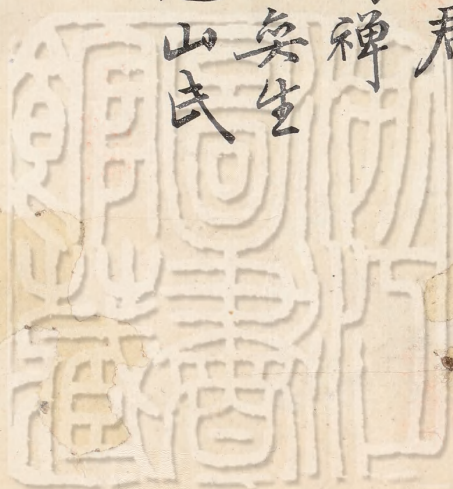 禅
奐生
山民
浙江
圖書
館藏